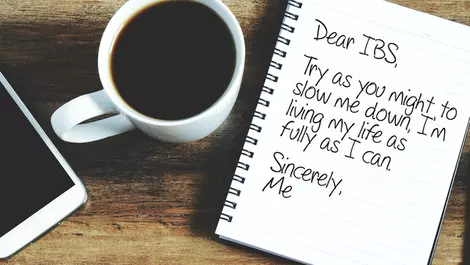 Dear IBS,
Try as you might to
slow me down, I'm
living my life as
fully as I can.
Sincerely,
Me